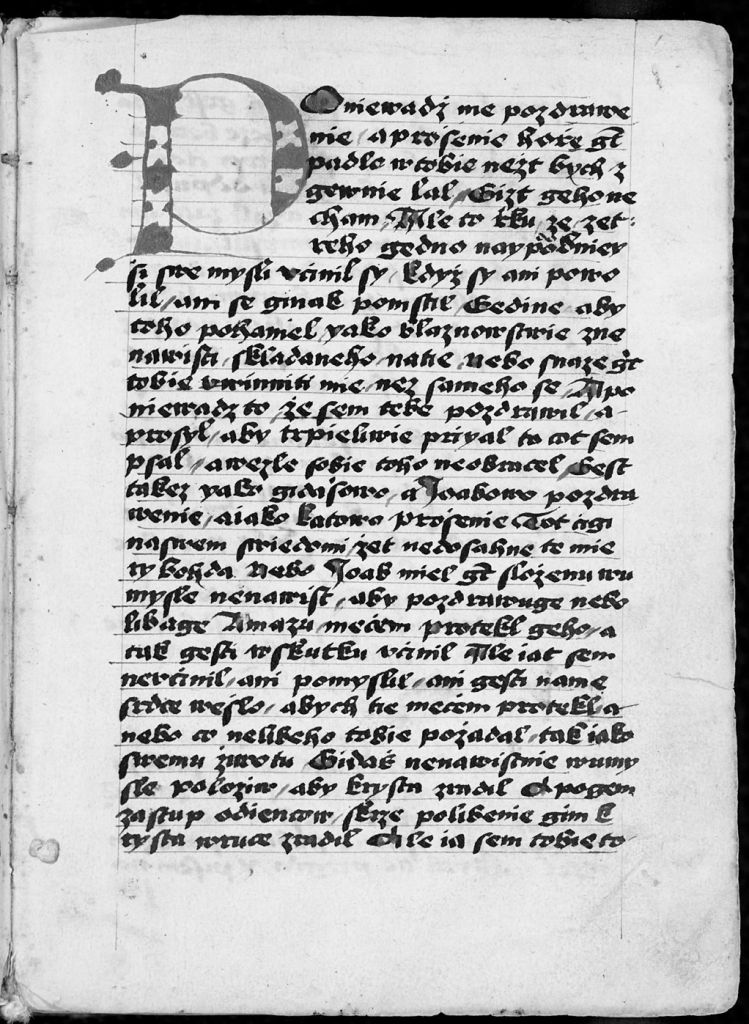 Poniewadz me pozdrawe
nie, a prosenie horę gt
padlo w tobie nezt bych z
gewnie lal, Gizt geho ne
cham, Ale to rku, ze, zet
reho gedno naypodniey
si swe mysli vcinil sy, kdyz sy ani powo
lil, ani se ginak pomstil, Gedine aby
toho pohaniel, yako blaznowstwie zne
nawisti, skladaneho, natie, Nebo snaze gt
tobie vwinniti mie, nez sameho se, A po
niewadz to, ze sem tebe pozdrawil, a
prosyl, aby trpieliwie priyal to cot sem
psal, a wezle sobie toho neobracel, Gest
takez yako gidasowo, a Joabowo pozdra
wenie, a iako katowo prosenie Tot cigi
naswem swiedomi, zet nedosahne te mie
ty bohda Nebo Joab miel gt slozenu wu
mysle nenawist, aby pozdrawuge nebo
libage Amazu, mecem protekl geho, a
tak gesti wskutku vcinil Ale iat sem
nevcinil, ani pomyslil, ani gesti name
srdce weslo, abych tie mecem protekl a
nebo co nelibeho tobie pozadal, tak iako
swemu zwotu Gidas nenawistnie wumy
sle poloziw, aby krysta zradil A pogem
zastup odiencow, skrze polibenie gim k
rysta wruce zradil Ale ia sem tobie to